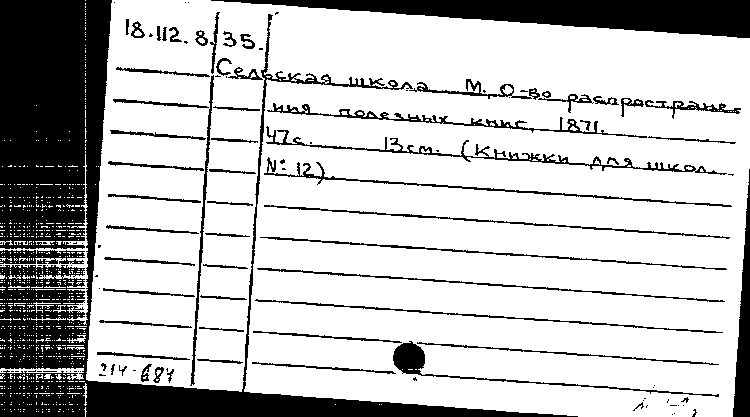 18.112.8.35.
Сельская школа М. О-во распростране-
ния полезных книг, 1871.
47с. 13см. (Книжки для школ.
№ 12).
214-687